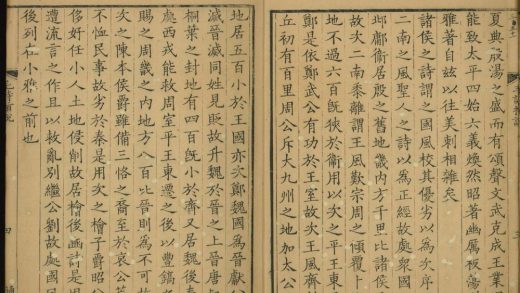 夏典殷湯之盛而有頌聲文武克成王業
能致太平四始六義煥然昭著幽厲板蕩
雅著自玆以往美刺相雜矣
諸侯之詩謂之國風校其優劣以為次序
二南之風聖人之詩以為正經故處衆國
邶鄘衛居殷之舊地畿内方千里比諸侯
故次二南黍離謂王風歎宗周之傾覆卜
地不過六百旣狹於衛用以次之平王東
鄭是依鄭武公有功於王室故次王風齊
丘初有百里周公斥大九州之地加太公
地居五百小於王國亦次鄭魏國為晉獻
滅晉滅同姓見貶故升魏於晉之上晉唐
桐葉之封地有四百旣小於齊又居魏後
處西戎能救周室平王東遷之後以豐鎬
賜之周畿之内地方八百比晉則為不可故
次之陳本侯爵雖備三恪之裔至於哀公
不恤民事故劣於秦是用次之檜子爵昭公
侈好任小人土地侵削故居檜後豳詩是
遭流言之作且以救亂別繼公劉故處國
後列小雅之前也
毛詩指說
四